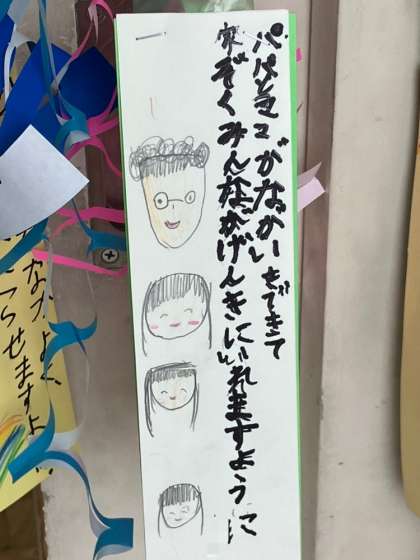 パパとママがながいきできて
家ぞくみんながげんきにいれますように
なかよく、
らせますよ